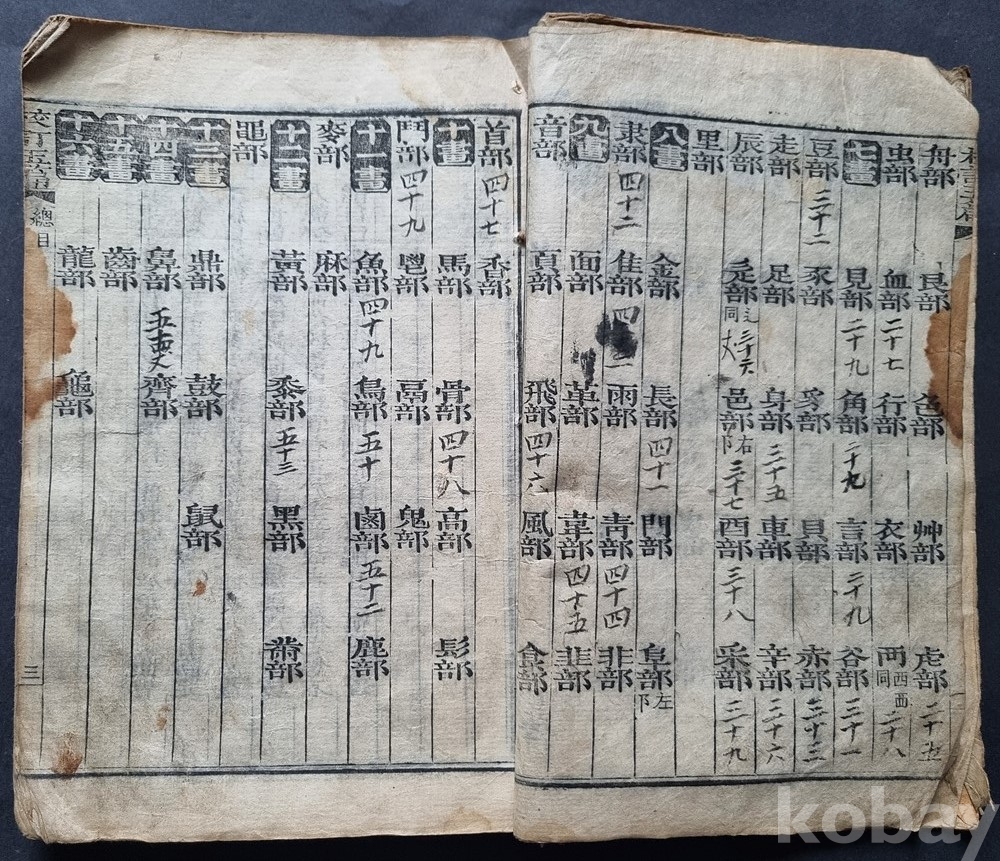 舟部 艮部 色部 艸部 虍部
虫部 血部 二十七 行部 衣部 襾部 西覀同 二十八
七畫 見部 二十九 角部 二十九 言部 二十九 谷部 三十一
豆部 三十二 豕部 豸部 貝部 赤部 三十三
走部 足部 身部 三十五 車部 辛部 三十六
辰部 辵部 辶同 三十六 邑部 右阝 三十七 酉部 三十八 釆部 三十九
里部
八畫 金部 長部 四十一 門部 阜部 左阝
隶部 四十二 隹部 雨部 靑部 四十四 非部
九畫 面部 革部 韋部 四十五 韭部
音部 頁部 飛部 四十六 風部 食部
首部 四十七 香部
十畫 馬部 骨部 四十八 高部 髟部
鬥部 四十九 鬯部 鬲部 鬼部
十一畫 魚部 四十九 鳥部 五十 鹵部 五十二 鹿部
麥部 麻部
十二畫 黃部 黍部 五十三 黑部 黹部
黽部
十三畫 鼎部 鼓部 鼠部
十四畫 鼻部 齊部
十五畫 齒部
十六畫 龍部 龜部
總目 三
kobay